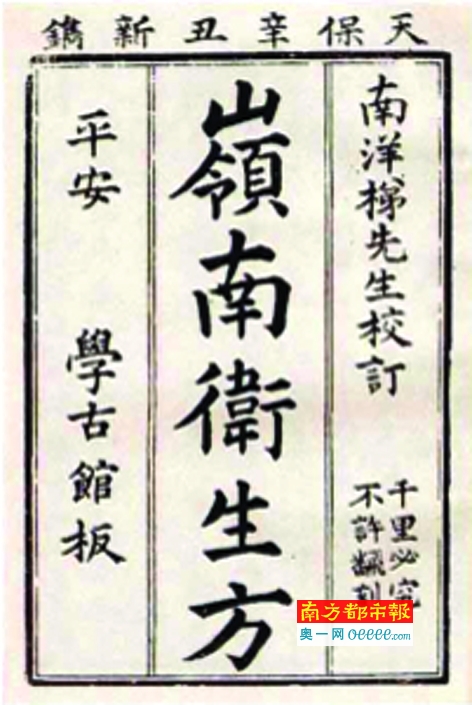 天保辛丑新鐫
南洋梯先生校訂
千里必究
不許翻刻
嶺南衛生方
平安 學古館板
南方都市報
奥一网 oeeee.com